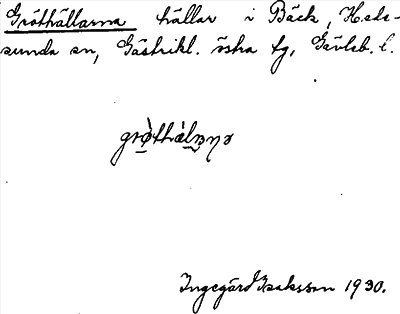 Gröthällarna hällar i Bäck, Heds-
sunda sn, Gästrikl. östra tg, Gävleb. l.
Ingegärd Isaksson 1930.